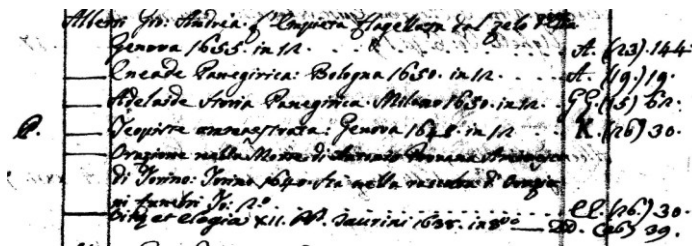 Alberti Gio: Andrea. l'Impiera flagellata dal zelo d'Elia
Genova 1655. in 12. A. (23) 144
Eneade Panegirica: Bologna 1650. in 12. A. (19) 19.
Adelaide Storia Panegirica. Milano 1650. in 12. GG. (15) 62.
P. Teopiste ammaestrata: Genova 1648. in 12 K. (26) 30.
Orazione nella Morte di
di Torino: Torino 1640. sta nella raccolta d'Orazio
ni funebri To: 2.º CC. (26.) 30.
et elogia XII. PP. Taurini 1638. in 8.º DD. (26) 39.